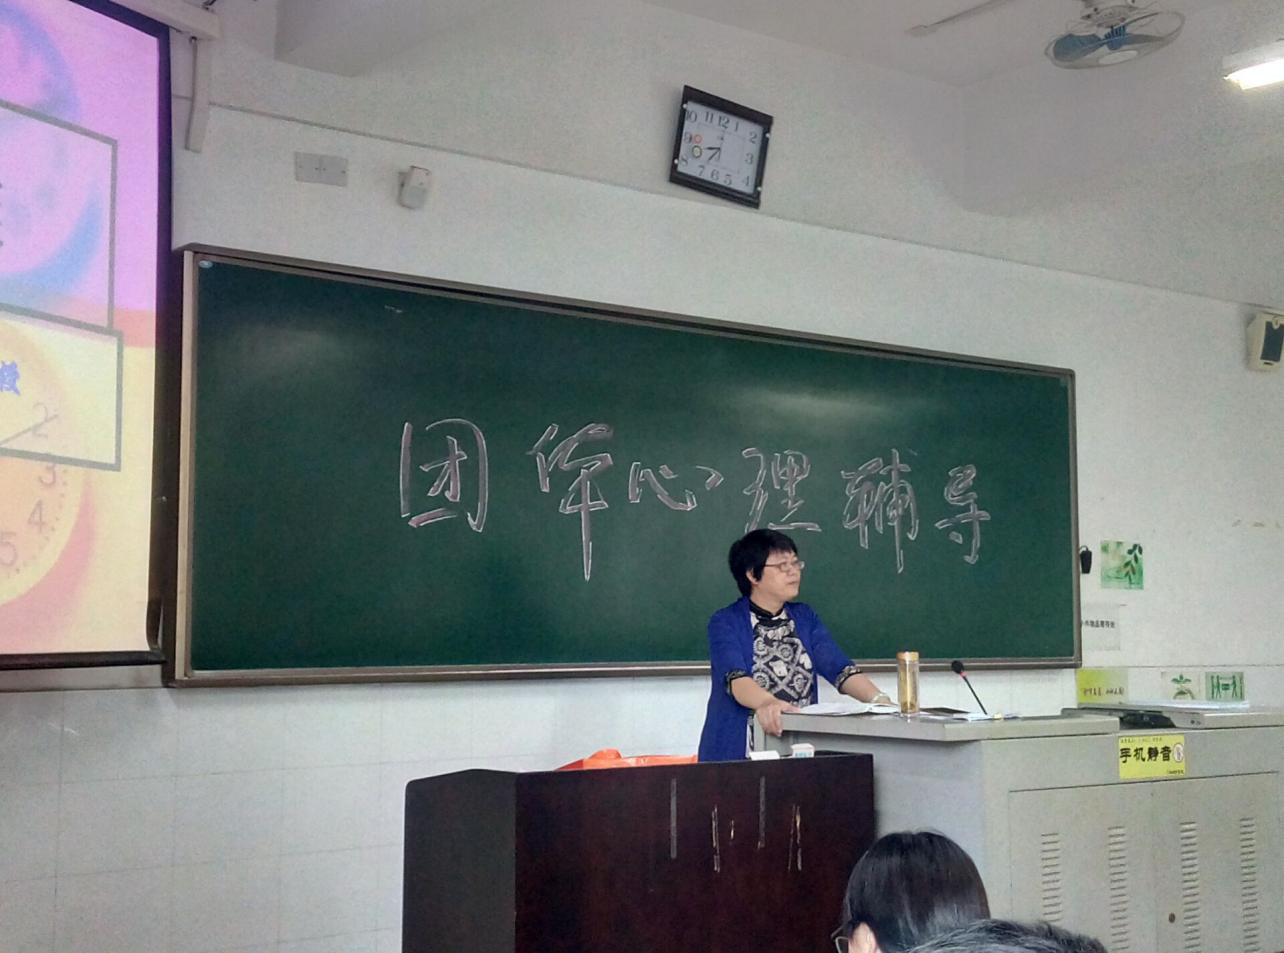 团体心理辅导
10 11 12 1 2 3 4 5 6 7 8 9
2
3
4
5
手机静音